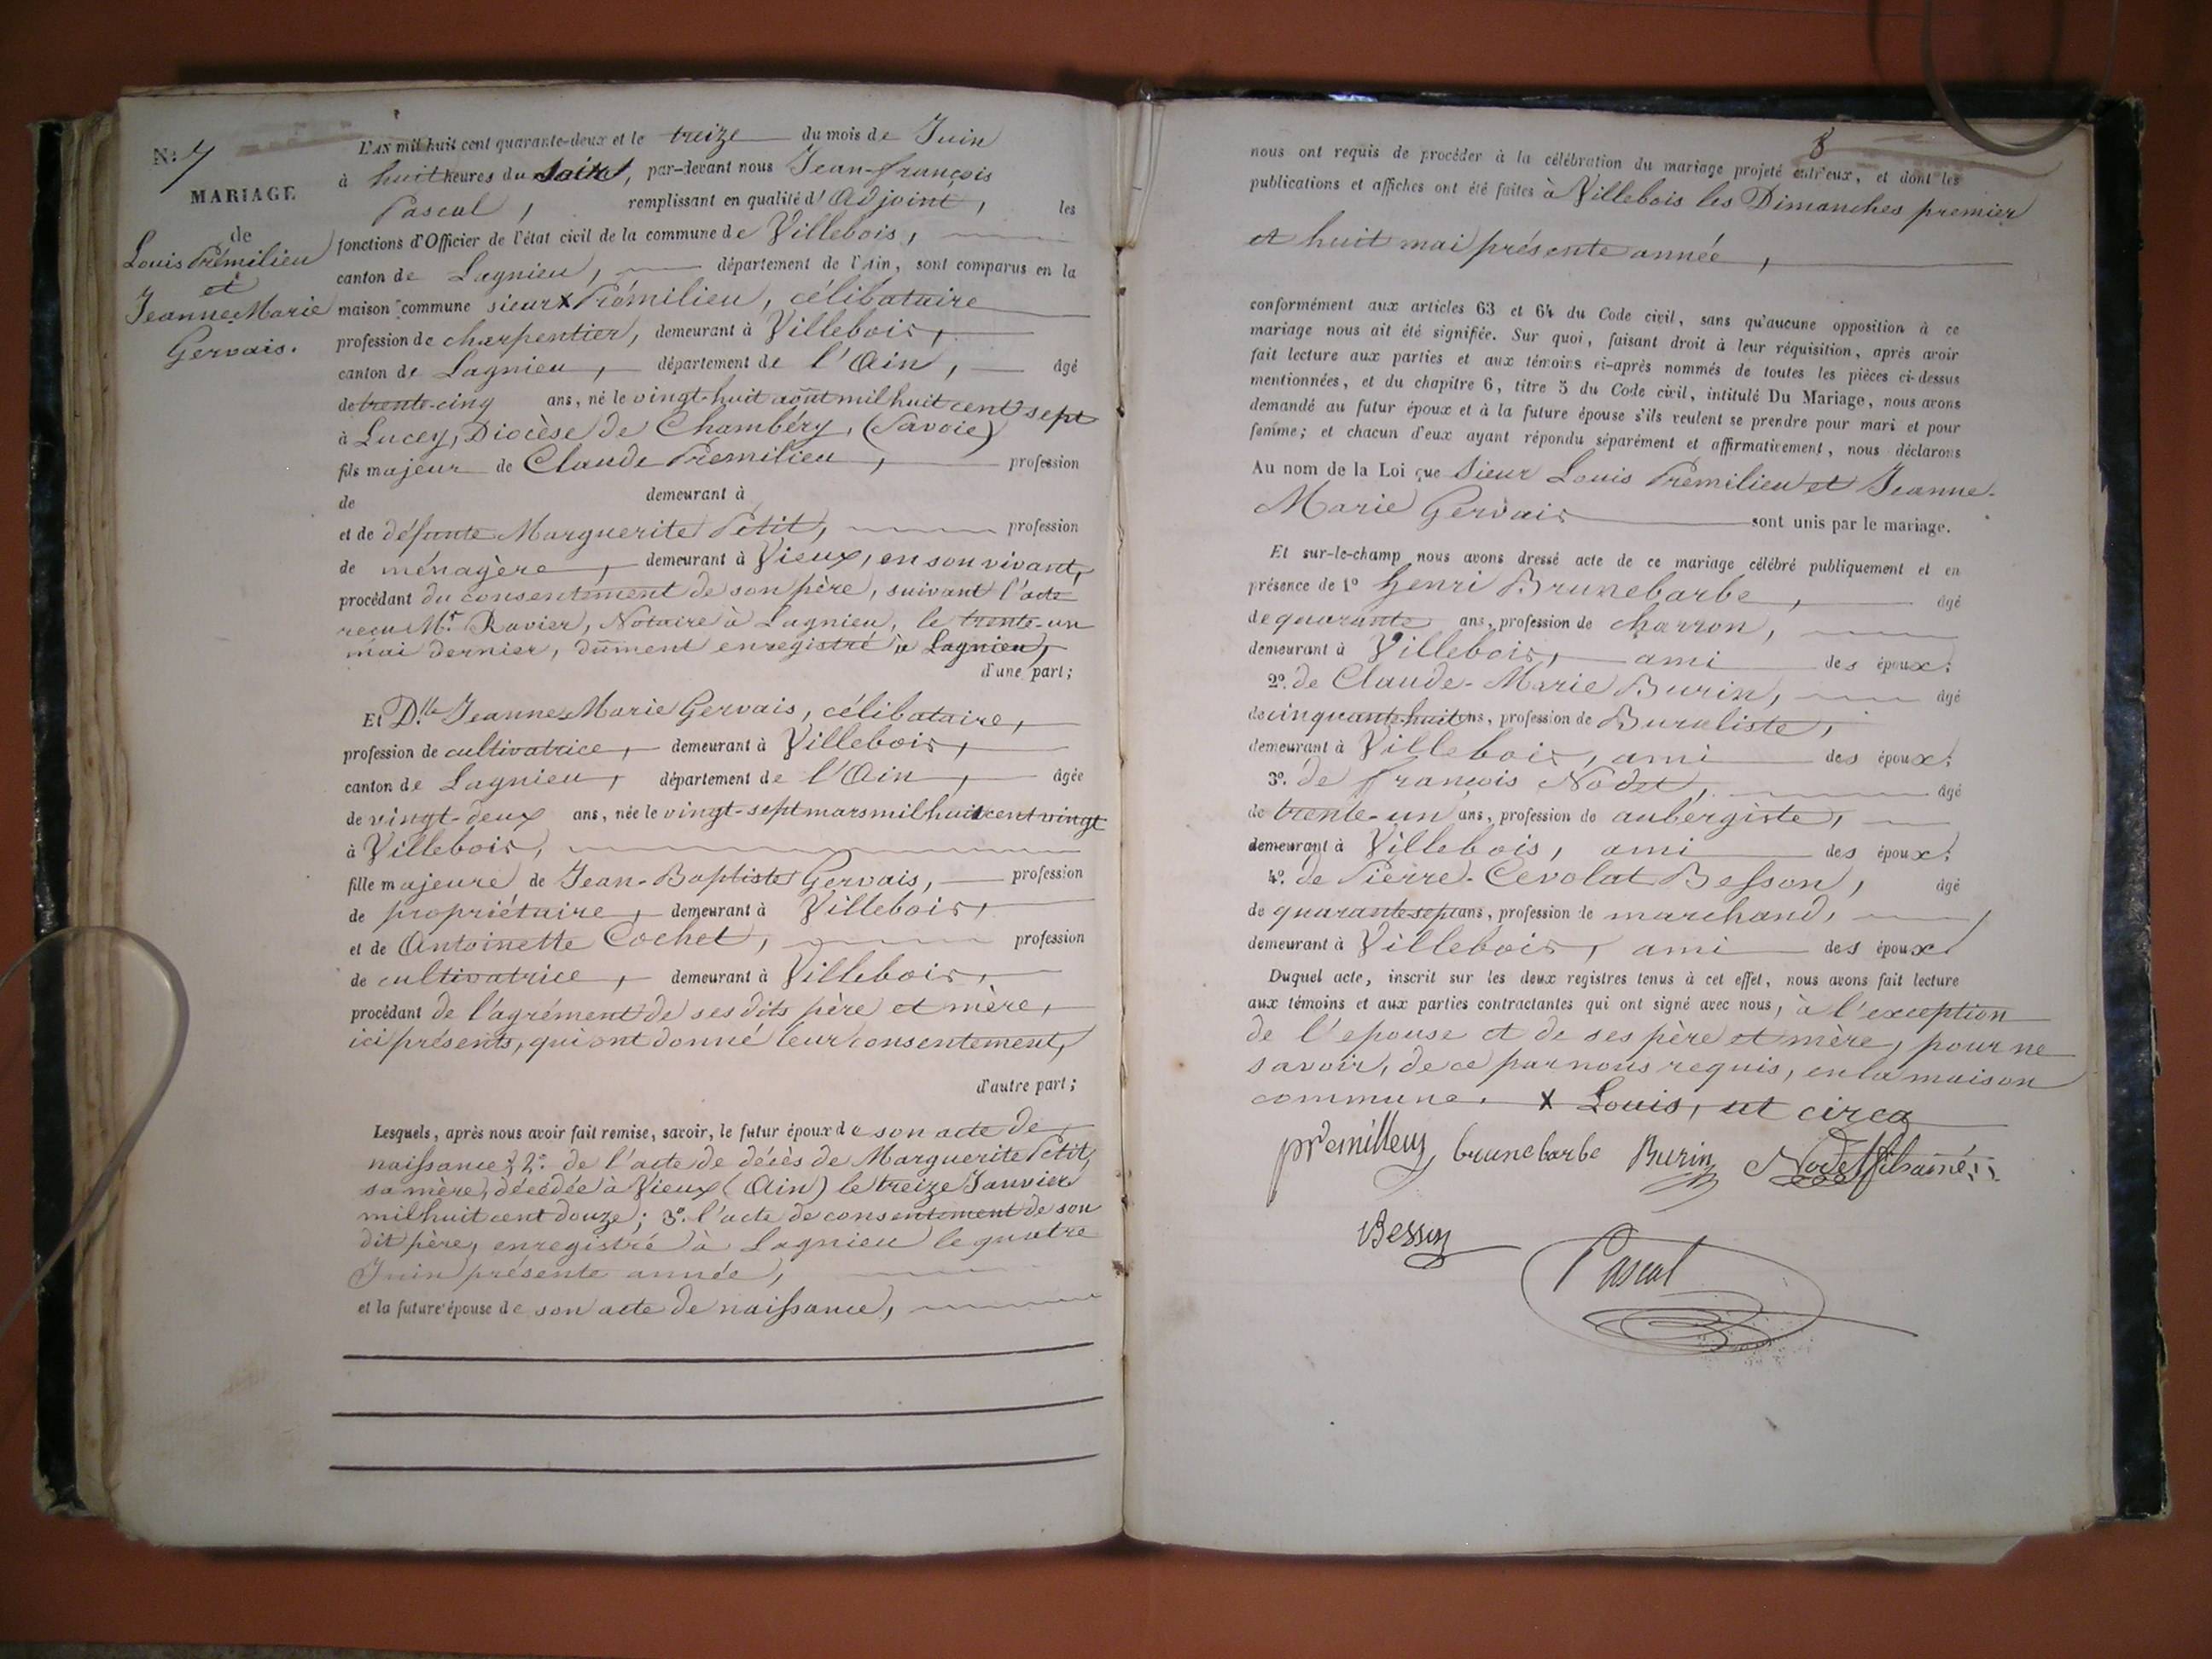 N: 7
MARIAGE
de
Louis Prémilieu
et
Jeanne-Marie
Gervais.
L'AN mil huit cent quarante-deux et le treize du mois de Juin
à huit heures du soir, par-devant nous Jean-françois
Pascal, remplissant en qualité d'Adjoint, les
fonctions d'Officier de l'état civil de la commune de Villebois,
canton de Lagnieu, département de l'Ain, sont comparus en la
maison commune sieur X Prémilieu, célibataire
profession de charpentier, demeurant à Villebois,
canton de Lagnieu, département de l'Ain, âgé
de trente-cinq ans, né le vingt-huit août mil huit cent sept
à Lucey, Diocèse de Chambéry, (Savoie)
fils majeur de Claude Premilieu, profession
de demeurant à
et de défunte Marguerite Petit, profession
de ménagère, demeurant à Vieux, en son vivant,
procédant du consentement de son père, suivant l'acte
reçu Mr. Ravier, Notaire à Lagnieu, le trente-un
mai dernier, dûment enregistré à Lagnieu,
d'une part;
Et D.lle Jeanne-Marie Gervais, célibataire,
profession de cultivatrice, demeurant à Villebois,
canton de Lagnieu, département de l'Ain, âgée
de vingt-deux ans, née le vingt-sept mars mil huit cent vingt
à Villebois,
fille majeure de Jean-Baptiste Gervais, profession
de propriétaire, demeurant à Villebois,
et de Antoinette Cochet, profession
de cultivatrice, demeurant à Villebois,
procédant de l'agrément de ses dits père et mère,
ici présents, qui ont donné leur consentement,
d'autre part;
Lesquels, après nous avoir fait remise, savoir, le futur époux de son acte de
naissance; 2o. de l'acte de décès de Marguerite Petit,
sa mère, décédée à Vieux (Ain) le treize Janvier
mil huit cent douze; 3o. l'acte de consentement de son
dit père, enregistré à Lagnieu le quatre
Juin présente année,
et la future épouse de son acte de naissance,
8
nous ont requis de procéder à la célébration du mariage projeté entr'eux, et dont les
publications et affiches ont été faites à Villebois les Dimanches premier
et huit mai présente année,
conformément aux articles 63 et 64 du Code civil, sans qu'aucune opposition à ce
mariage nous ait été signifiée. Sur quoi, faisant droit à leur réquisition, après avoir
fait lecture aux parties et aux témoins ci-après nommés de toutes les pièces ci-dessus
mentionnées, et du chapitre 6, titre 5 du Code civil, intitulé Du Mariage, nous avons
demandé au futur époux et à la future épouse s'ils veulent se prendre pour mari et pour
femme; et chacun d'eux ayant répondu séparément et affirmativement, nous déclarons
Au nom de la Loi que Sieur Louis Premilieu et Jeanne-
Marie Gervais sont unis par le mariage.
Et sur-le-champ nous avons dressé acte de ce mariage célébré publiquement et en
présence de 1o henri Brunebarbe, âgé
de quarante ans, profession de charron,
demeurant à Villebois, ami des époux;
2o. de Claude-Marie Burin, âgé
de cinquante-huit ans, profession de Buraliste,
demeurant à Villebois, ami des époux;
3o. de françois Nodet, âgé
de trente-un ans, profession de aubergiste,
demeurant à Villebois, ami des époux;
4o. de Pierre-Cevolat Besson, âgé
de quarante-sept ans, profession de marchand,
demeurant à Villebois, ami des époux
Duquel acte, inscrit sur les deux registres tenus à cet effet, nous avons fait lecture
aux témoins et aux parties contractantes qui ont signé avec nous, à l'exception
de l'epouse et de ses père et mère, pour ne
savoir, de ce par nous requis, en la maison
commune. X Louis, ut circa
premilleu brunebarbe Burin Nodet
Besson
Pascal